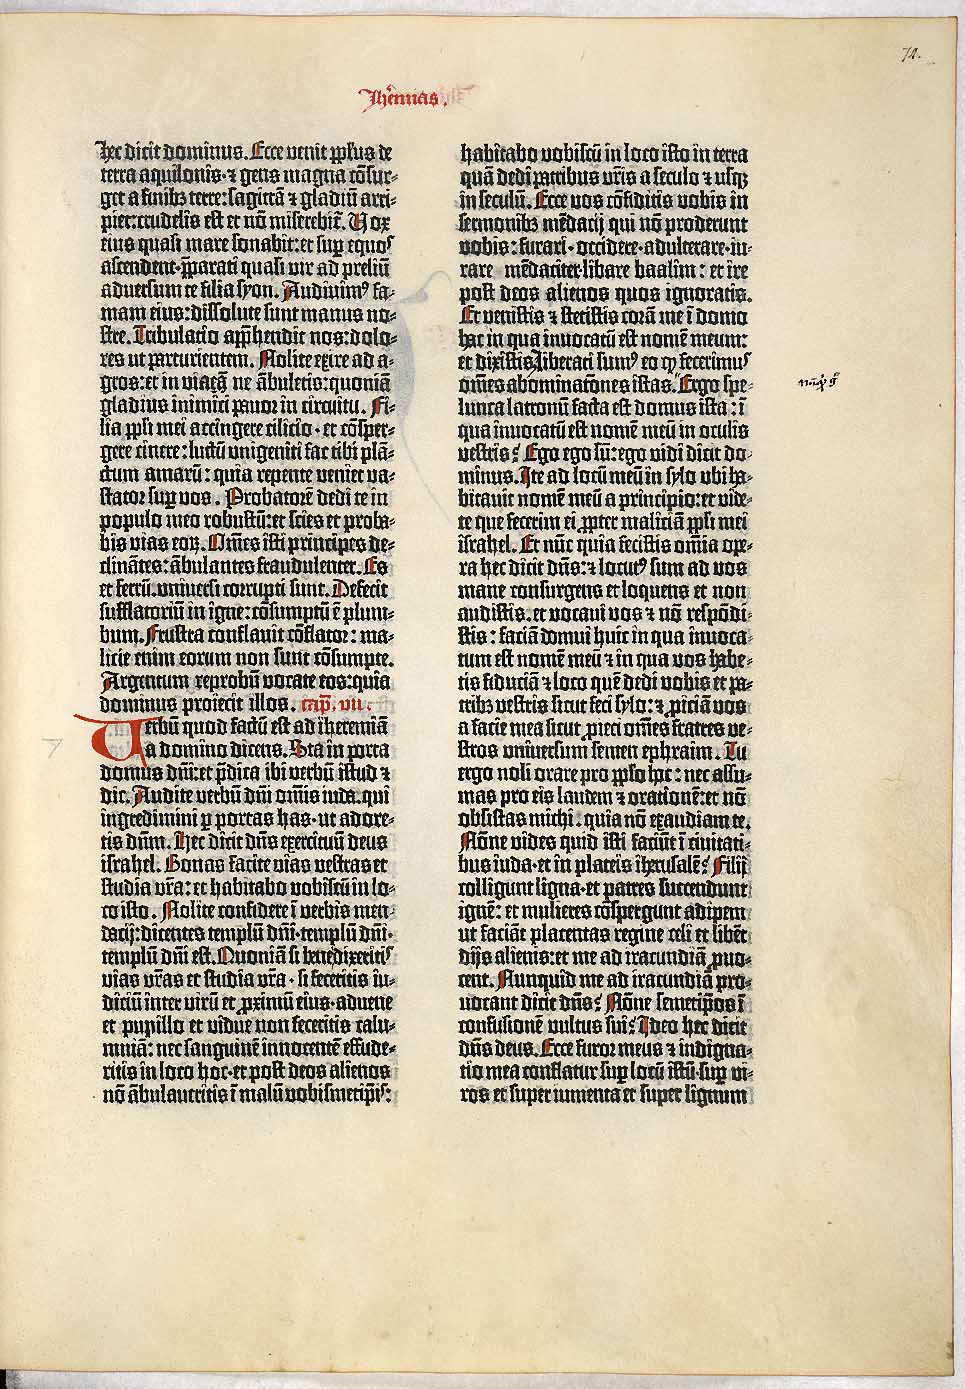 72.
Jheremias.
hec dicit dominus. Ecce venit ꝓpłus de
terra aquilonis·⁊ gens magna cōsur⸗
get a finibꝫ terre: sagittā ⁊ gladiū arri⸗
piet: crudelis est et nō miserebit̄. Vox
eius quasi mare sonabit: et sup̱ equos
ascendent·p̄parati quasi vir ad preliū
adversum te filia syon. Audivimꝰ fa⸗
mam eius: dissolute sunt manus no⸗
stre. Tribulatio app̄hendit nos: dolo⸗
res ut parturientem. Nolite exire ad a⸗
gros: et in viā ne ābuletis: quoniā
gladius inimici pavor in circuitu. Fi⸗
lia ppl̄i mei accingere cilicio·et cōsper⸗
gere cinere: luctū unigeniti fac tibi plā⸗
ctum amarū: quia repente veniet va⸗
stator sup̱ vos. Probatorē dedi te in
populo meo robustū: et scies et proba⸗
bis vias eoꝝ. Om̄es isti principes de⸗
clinātes: ābulantes fraudulenter. Es
et ferrū·universi corrupti sunt. Defecit
sufflatoriū in igne: cōsumptū ē plum⸗
bum. Frustra conflavit cōflator: ma⸗
licie enim eorum non sunt cōsumpte.
Argentum reprobū vocate eos: quia
dominus proiecit illos. cap̄. vii.
Verbū quod factū est ad iheremiā
a domino dicens. Sta in porta
domus dn̄i: et p̄dica ibi verbū istud ⁊
dic. Audite verbū dn̄i om̄is iuda·qui
ingredimini p̱ portas has·ut adore⸗
tis dn̄m. Hec dicit dn̄s exercituū deus
israhel. Bonas facite vias vestras et
studia vr̄a: et habitabo vobiscū in lo⸗
co isto. Nolite confidere ī verbis men⸗
dacij: dicentes templū dn̄i·templū dn̄i·
templū dn̄i est. Quoniā si benedixeritis
vias vr̄as et studia vr̄a·si feceritis iu⸗
diciū inter virū et ꝓximū eius·advene
et pupillo et vidue non feceritis calu⸗
mniā: nec sanguinē innocentē effude⸗
ritis in loco hoc·et post deos alienos
nō ābulaveritis ī malū vobismetip̄is:
habitabo vobiscū in loco isto in terra
quā dedi patribus vr̄is a seculo ⁊ usqꝫ
in seculū. Ecce vos cōfiditis vobis in
sermonibꝫ mēdacij qui nō proderunt
vobis: furari·occidere·adulterare·iu⸗
rare mēdaciter·libare baalim: et ire
post deos alienos quos ignoratis.
Et venistis ⁊ stetistis corā me ī domo
hac in qua invocatū est nomē meum:
et dixistis Liberati sumꝰ eo ꝙ fecerimus
om̄es abominatōnes istas. Ergo spe⸗
lunca latronū facta est domus ista: ī
qua invocatū est nomē meū in oculis
vestris? Ego ego sū: ego vidi dicit do⸗
minus. Ite ad locū meū in sylo ubi ha⸗
bitavit nomē meū a principio: et vide⸗
te que fecerim ei ꝓpter maliciā ppl̄i mei
israhel. Et nūc quia fecistis om̄ia ope⸗
ra hec dicit dn̄s: ⁊ locutꝰ sum ad vos
mane consurgens et loquens et non
audistis·et vocavi vos ⁊ nō respōdi⸗
stis: faciā domui huic in qua invoca⸗
tum est nomē meū ⁊ in qua vos habe⸗
tis fiduciā ⁊ loco quē dedi vobis et pa⸗
tribꝫ vestris sicut feci sylo: ⁊ ꝓiciā vos
a facie mea sicut ꝓieci om̄es fratres ve⸗
stros universum semen ephraim. Tu
ergo noli orare pro pp̄lo hoc: nec assu⸗
mas pro eis laudem ⁊ orationē: et nō
obsistas michi·quia nō exaudiam te.
Nōne vides quid isti faciūt ī civitati⸗
bus iuda·et in plateis iherusalē? Filij
colligunt ligna·et patres succendunt
ignē: et mulieres cōspergunt adipem
ut faciāt placentas regine celi et libēt
dijs alienis: et me ad iracundiā ꝓvo⸗
cent. Nunquid me ad iracundiā pro⸗
vocant dicit dn̄s? Nōne semetip̄os ī
confusionē vultus sui? Ideo hec dicit
dn̄s deus. Ecce furor meus ⁊ indigna⸗
tio mea conflatur sup̱ locū istū·sup̱ vi⸗
ros et super iumenta et super lignum